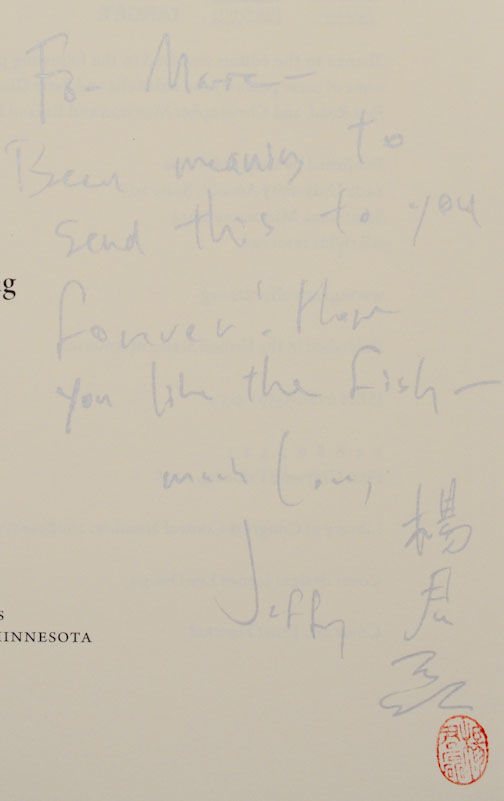 For Marie—
Been meaning to
send this to you
forever! Hope
you like the fish—
much love,
Jeffrey
楊
君
g
S
MINNESOTA